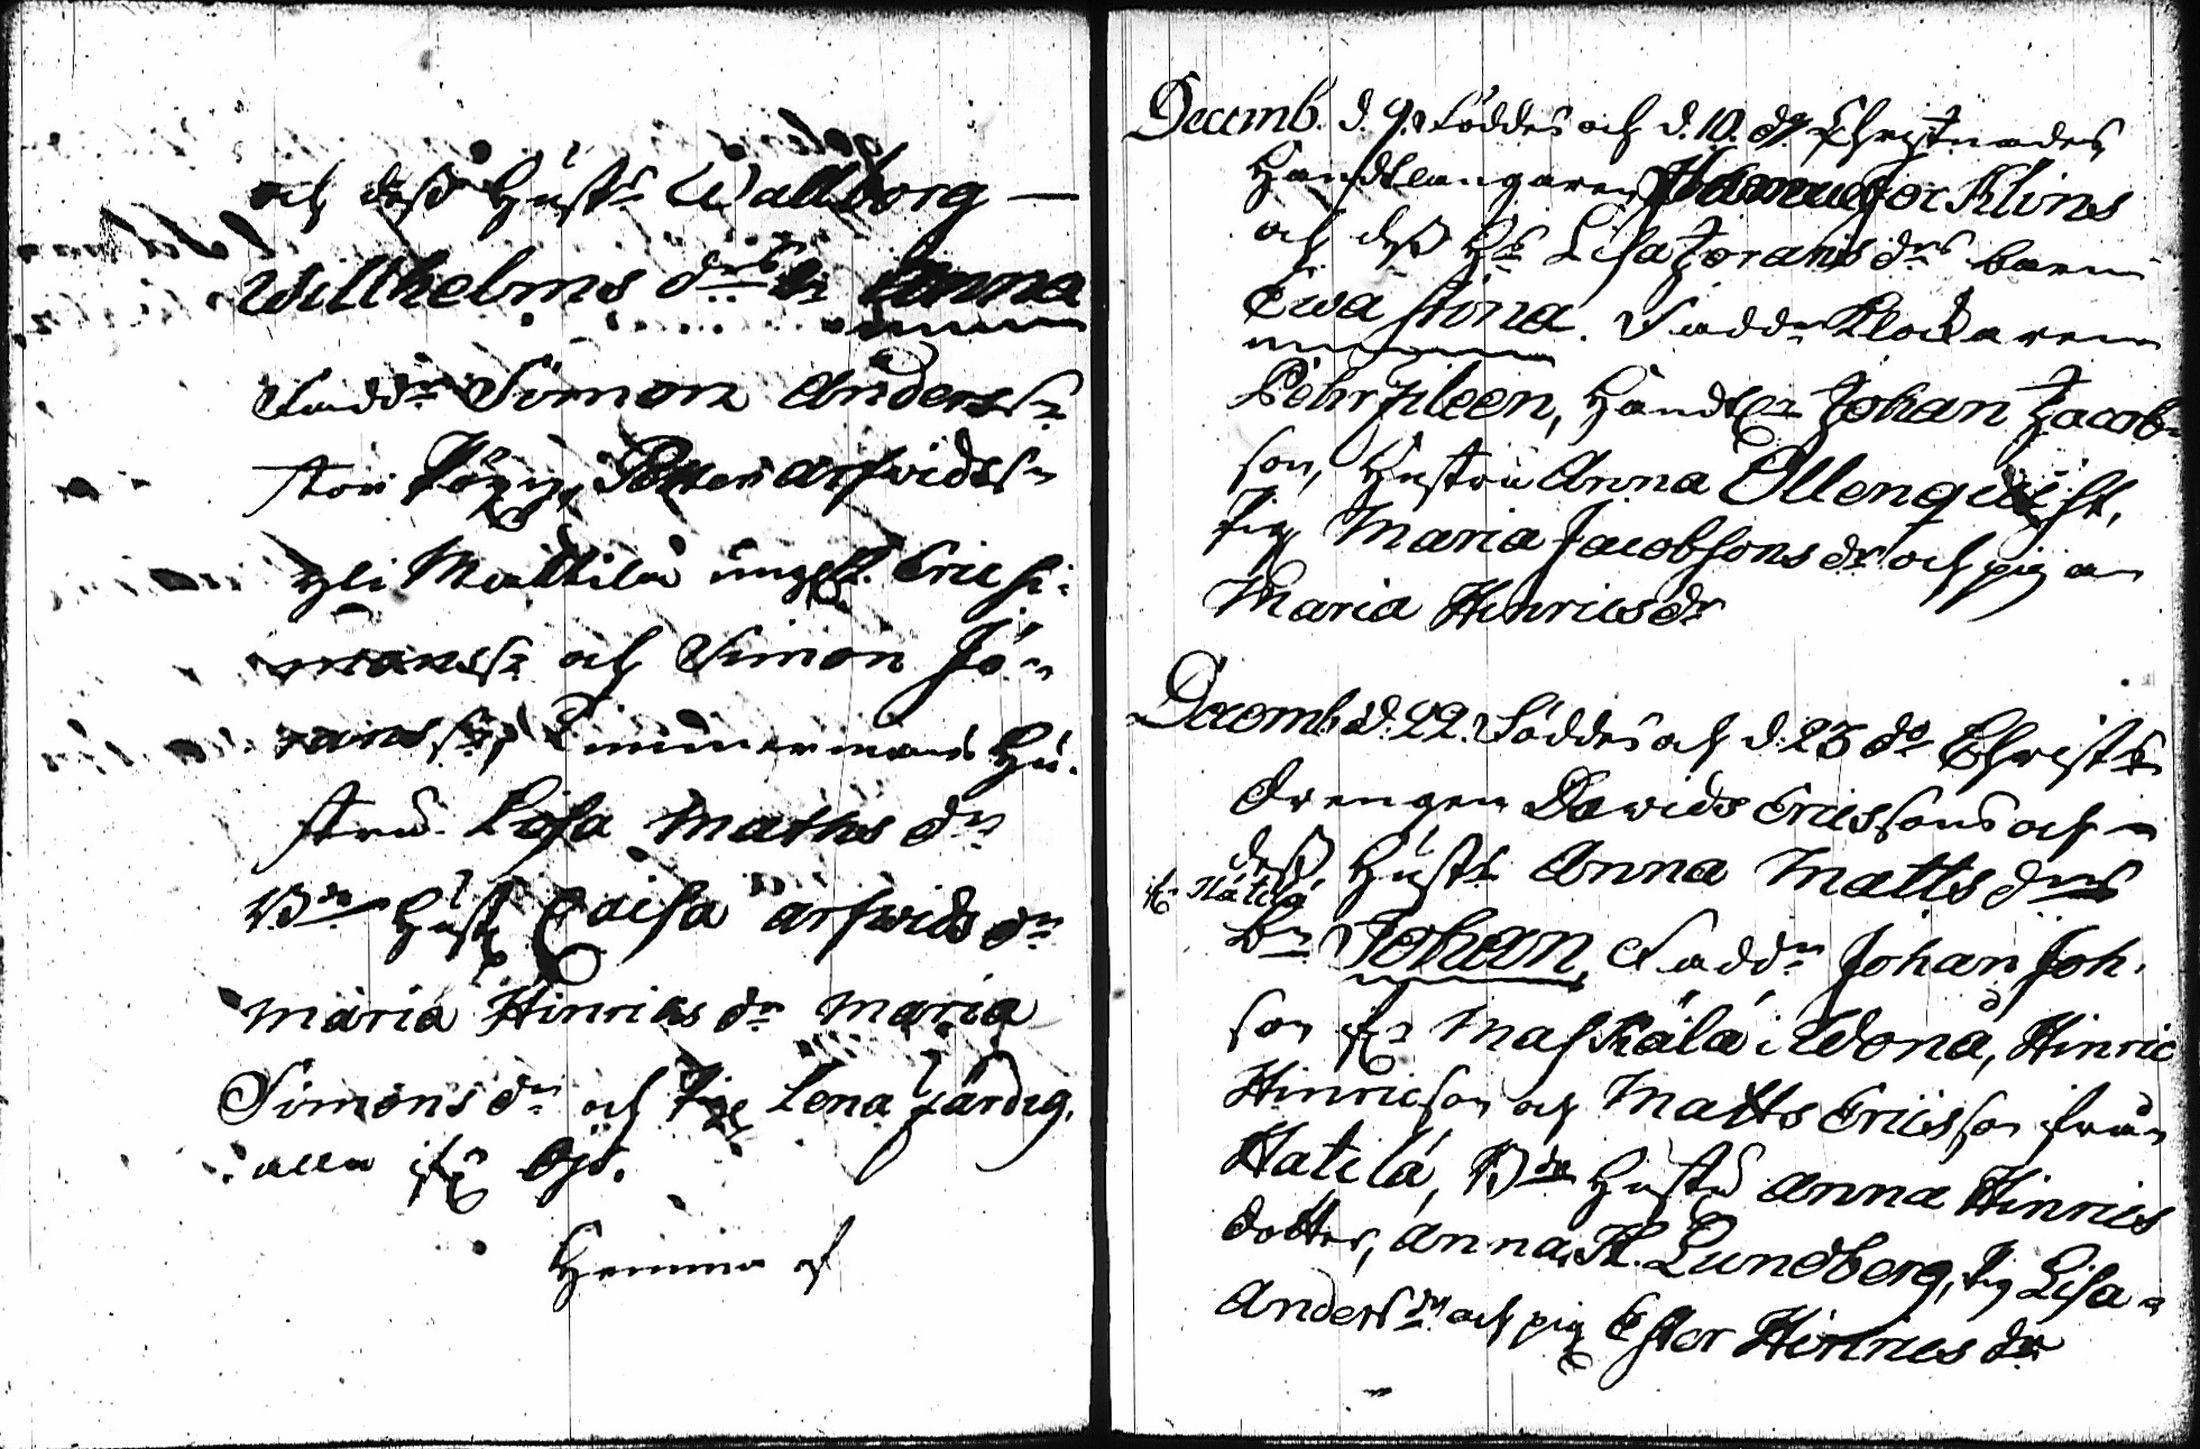 och dess Hust. Wallborg —
Willhelms drs bn Anna
Faddr Simon Anderss:n
Petter Arfwidss:n
Mattila ungk. Eric Si-
monss:n och Simon Jö-
ranss:n, Timmermans Hu-
stru Lisa Matts dr
B:de Hust. Caisa Arfwids dr
Maria Hinrics dr Maria
Simons dr och Pig. Lena Järdig.
alla ifr. Ojo.
Decemb. d. 9. Föddes och d. 10. do Christnades
Handtlangaren Klins
och dess H:s Lisa Jorans drs barn
Ewa Stina. Faddr Klockaren
Pehr Fileen, Handtl:n Johan Jacob-
son, Hustru Anna Ollenqwist,
Pig Maria Jacobsons dr och pigan
Maria Hinrics dr
Decemb. d. 22. Föddes och d. 23 do Christn:
Drengen Davids Ericssons och
dess Hustr. Anna Matts drs
fr. Hätilä
Bn Johan, Faddr Johan Joh.
son fr. Maskälä i Idona, Hinric
Hinricson och Matts Ericsson från
Hatila, B:de Hustru Anna Hinrics
dotter, Anna H. Lundberg, Pig Lisa
Anders dr och pig Ester Hinrics dr